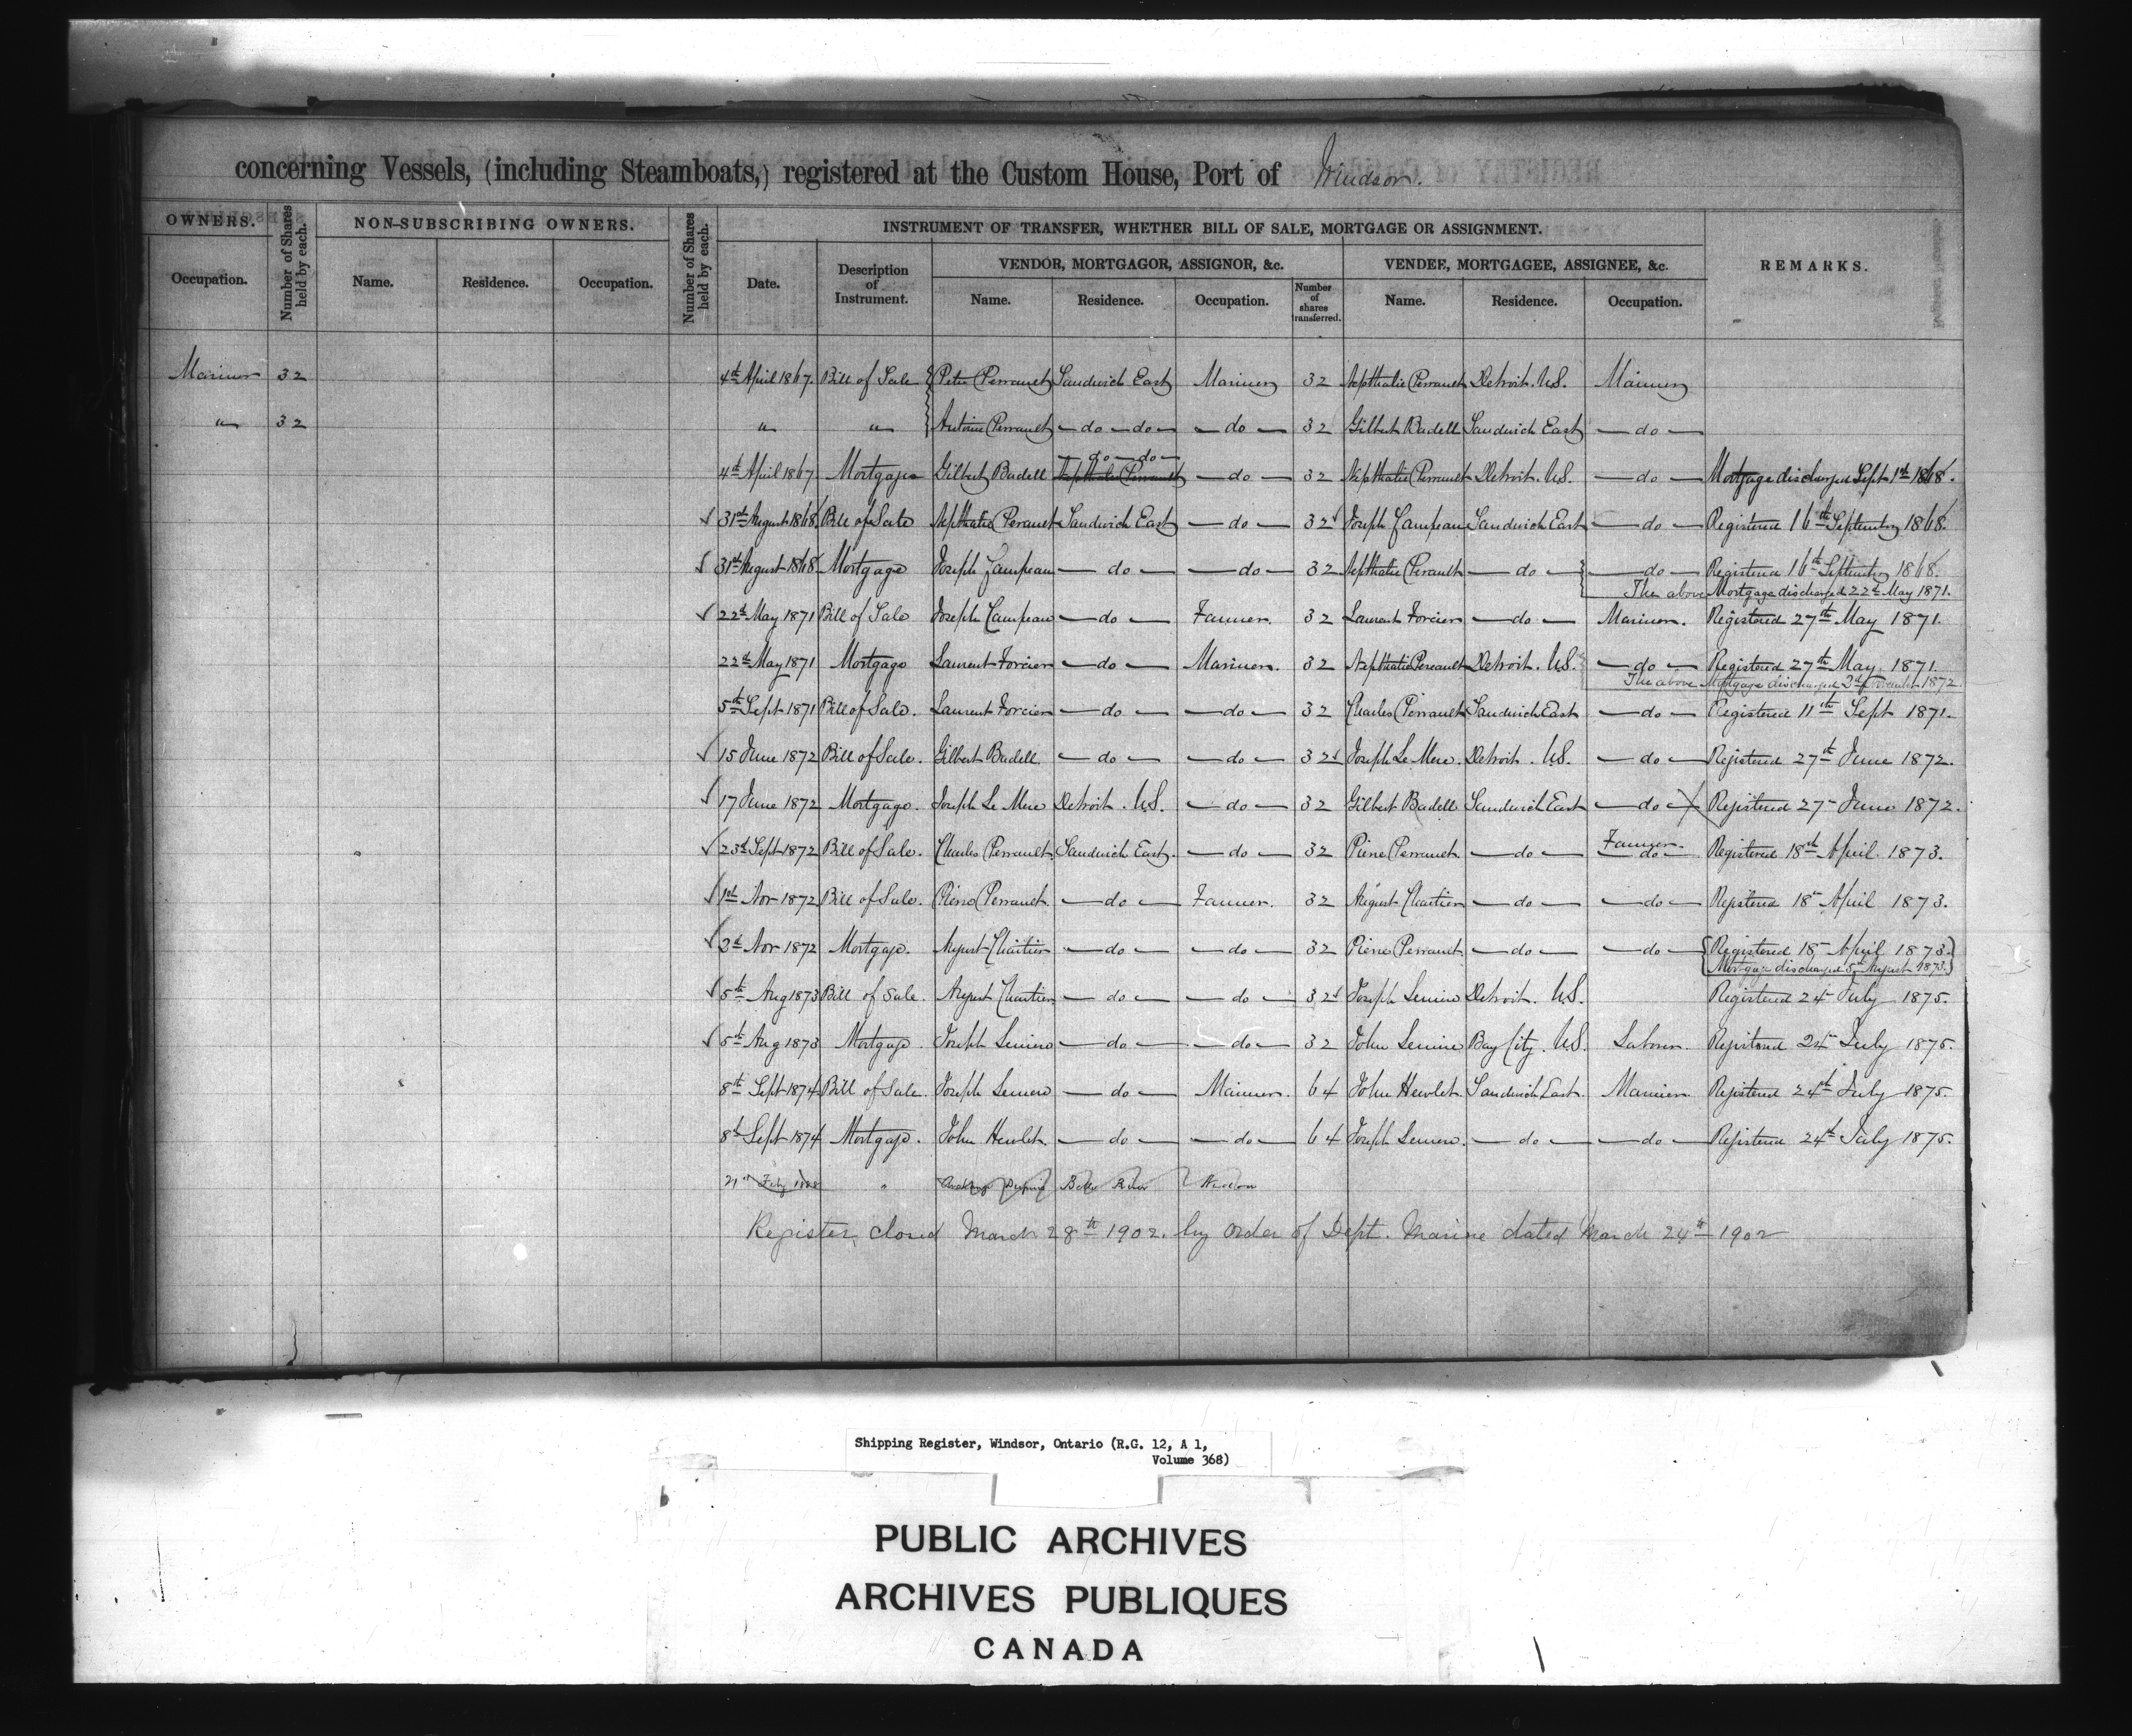 concerning Vessels, (including Steamboats,) registered at the Custom House, Port of Windsor.
OWNERS. Number of Shares held by each. NON-SUBSCRIBING OWNERS. Number of Shares held by each. INSTRUMENT OF TRANSFER, WHETHER BILL OF SALE, MORTGAGE OR ASSIGNMENT. REMARKS.
VENDOR, MORTGAGOR, ASSIGNOR, &c. VENDEE, MORTGAGEE, ASSIGNEE, &c.
Occupation. Name. Residence. Occupation. Date. Description of Instrument. Name. Residence. Occupation. Number of shares transferred. Name. Residence. Occupation.
Mariner 32 4th April 1867. Bill of Sale Peter Perrault Sandwich East Mariner 32 Nepthalie Perrault Detroit. U.S. Mariner
" 32 " " Antoine Perrault do do do 32 Gilbert Badell Sandwich East do
do do
4th April 1867 Mortgage Gilbert Badell Nepthalie Perrault do 32 Nepthalie Perrault Detroit. U.S. do Mortgage discharged Sept 1st 1868.
31st August 1868. Bill of Sale Nepthalie Perault Sandwich East do 32 Joseph Campeau Sandwich East do Registered 16th September 1868.
31st August 1868. Mortgage Joseph Campeau do do 32 Nepthalie Perault do do Registered 16th September 1868.
The above Mortgage discharged 22nd May 1871.
22d May 1871 Bill of Sale Joseph Campeau do Farmer. 32 Laurent Forcier do Mariner. Registered 27th May 1871.
22d May 1871 Mortgage Laurent Forcier do Mariner. 32 Nepthalie Pereault Detroit. U.S. do Registered 27th May. 1871.
The above Mortgage discharged 1872.
5th Sept 1871 Bill of Sale. Laurent Forcier do do 32 Charles Perrault Sandwich East do Registered 11th Sept 1871.
15 June 1872 Bill of Sale. Gilbert Badell. do do 32 Joseph Le Mere. Detroit. U.S. do Registered 27th June 1872.
17 June 1872 Mortgage. Joseph Le Mere Detroit. U.S. do 32 Gilbert Badell Sandwich East do Registered 27 June 1872.
23d Sept 1872 Bill of Sale. Charles Perrault Sandwich East. do 32 Pierre Perrault do Farmer. do Registered 18th April. 1873.
1st Nov 1872 Bill of Sale. Pierre Perrault. do Farmer. 32 August Chartier do do Registered 18th April 1873.
2d Nov 1872 Mortgage. August Chartier do do 32 Pierre Perrault do do Registered 18th April 1873.
Mortgage discharged 5th August 1873.
5th Aug 1873 Bill of Sale. August Chartier do do 32 Joseph Lemire Detroit. U.S. Registered 24 July 1875.
5th Aug 1873 Mortgage. Joseph Lemire do do 32 John Lemire Bay City. U.S. Laborer. Registered 24th July 1875.
8th Sept 1874 Bill of Sale. Joseph Lemere do Mariner. 64 John Hewlet. Sandwich East. Mariner. Registered 24th July 1875.
8th Sept 1874 Mortgage. John Hewlet. do do 64 Joseph Lemere. do do Registered 24th July 1875.
21st Feby "
Register closed March 28th 1902. by order of Dept. Marine dated March 24th 1902
Shipping Register, Windsor, Ontario (R.G. 12, A 1,
Volume 368)
PUBLIC ARCHIVES
ARCHIVES PUBLIQUES
CANADA